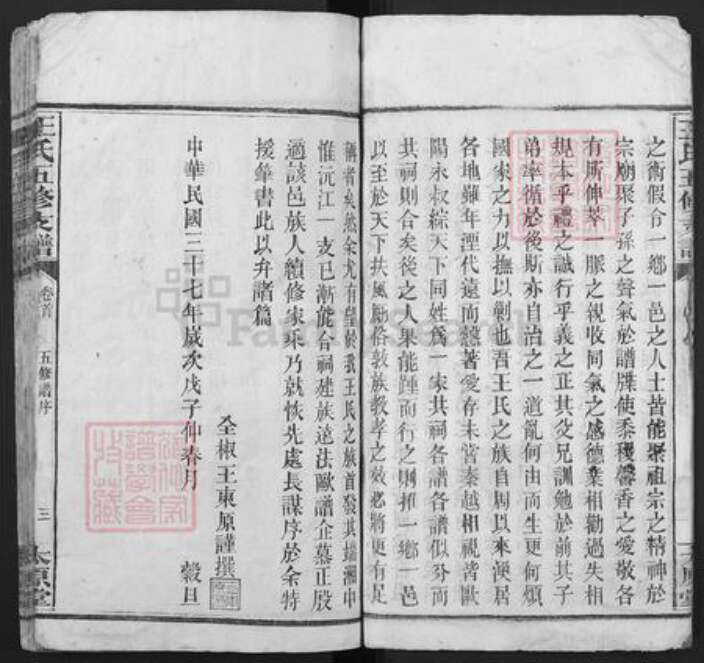 之衡假令一鄉一邑之人士皆能聚祖宗之精神於
宗廟聚子孫之聲氣於譜牒使黍稷馨香之愛敬各
有所伸萃一脈之親收同氣之感德業相勸過失相
規本乎禮之誠行乎義之正其父兄訓勉於前其子
弟率循於後斯亦自治之一道亂何由而生更何煩
國家之力以撫以剿也吾王氏之族自周以來散居
各地雖年湮代遠而譜著愛存未嘗秦越相視皆歐
陽永叔綜天下同姓為一家共祠各譜各譜似分而
共祠則合矣後之人果能踵而行之則推一鄉一邑
以至於天下扶風勵俗敦族教孝之效必將更有足
稱者矣然余尤有望於我王氏之族首發其端湘中
惟沅江一支已漸能合祠建族遠法歐譜企慕正殷
適該邑族人續修家乘乃就恢先處長謀序於余特
援筆書此以弁諸篇
中華民國三十七年歲次戊子仲春月 穀旦
全椒王東原謹撰
王氏五修支譜
卷首
五修譜序
三
太原堂
FamilySearch